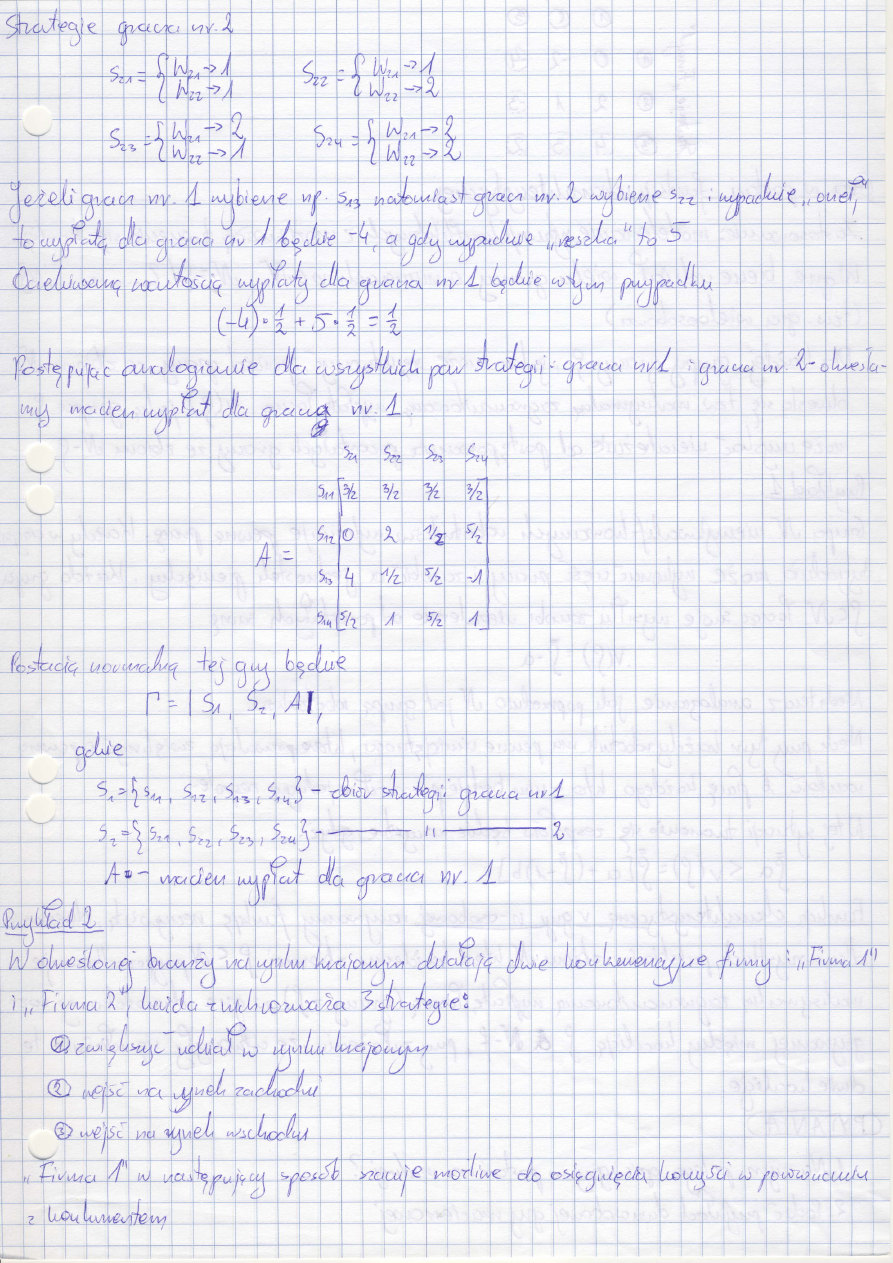 Strategie gracza nr. 2
S21 = { W21 → 1    S22 = { W21 → 1
W22 → 1    W22 → 2
S23 = { W21 → 2    S24 = { W21 → 2
W22 → 1    W22 → 2
Jeżeli gracz nr. 1 wybierze np. S13 natomiast gracz nr. 2 wybierze S22 i wypadnie „orzeł"
to wypłatą dla gracza nr 1 będzie -4, a gdy wypadnie „reszka" to 5
Oczekiwaną wartością wypłaty dla gracza nr 1 będzie w tym przypadku
(-4) · 1/2 + 5 · 1/2 = 1/2
Postępując analogicznie dla wszystkich par strategii: gracza nr 1 i gracza nr. 2 - określa-
my macierz wypłat dla gracza nr. 1.
S21 S22 S23 S24
S11 3/2 3/2 3/2 3/2
S12 0 2 1/2 5/2
A =
S13 4 1/2 5/2 -1
S14 5/2 1 5/2 1
Postacią normalną tej gry będzie
Γ = | S1, S2, A |,
gdzie
S1 = {S11, S12, S13, S14} - zbiór strategii gracza nr 1
S2 = {S21, S22, S23, S24} - —— " —— 2
A - macierz wypłat dla gracza nr. 1
Przykład 2
W określonej branży na rynku krajowym działają dwie konkurencyjne firmy: „Firma 1"
i „Firma 2", każda z nich rozważa 3 strategie:
① zwiększyć udział w rynku krajowym
② wejść na rynek zachodni
③ wejść na rynek wschodni
„Firma 1" w następujący sposób szacuje możliwe do osiągnięcia korzyści w porównaniu
z konkurentem